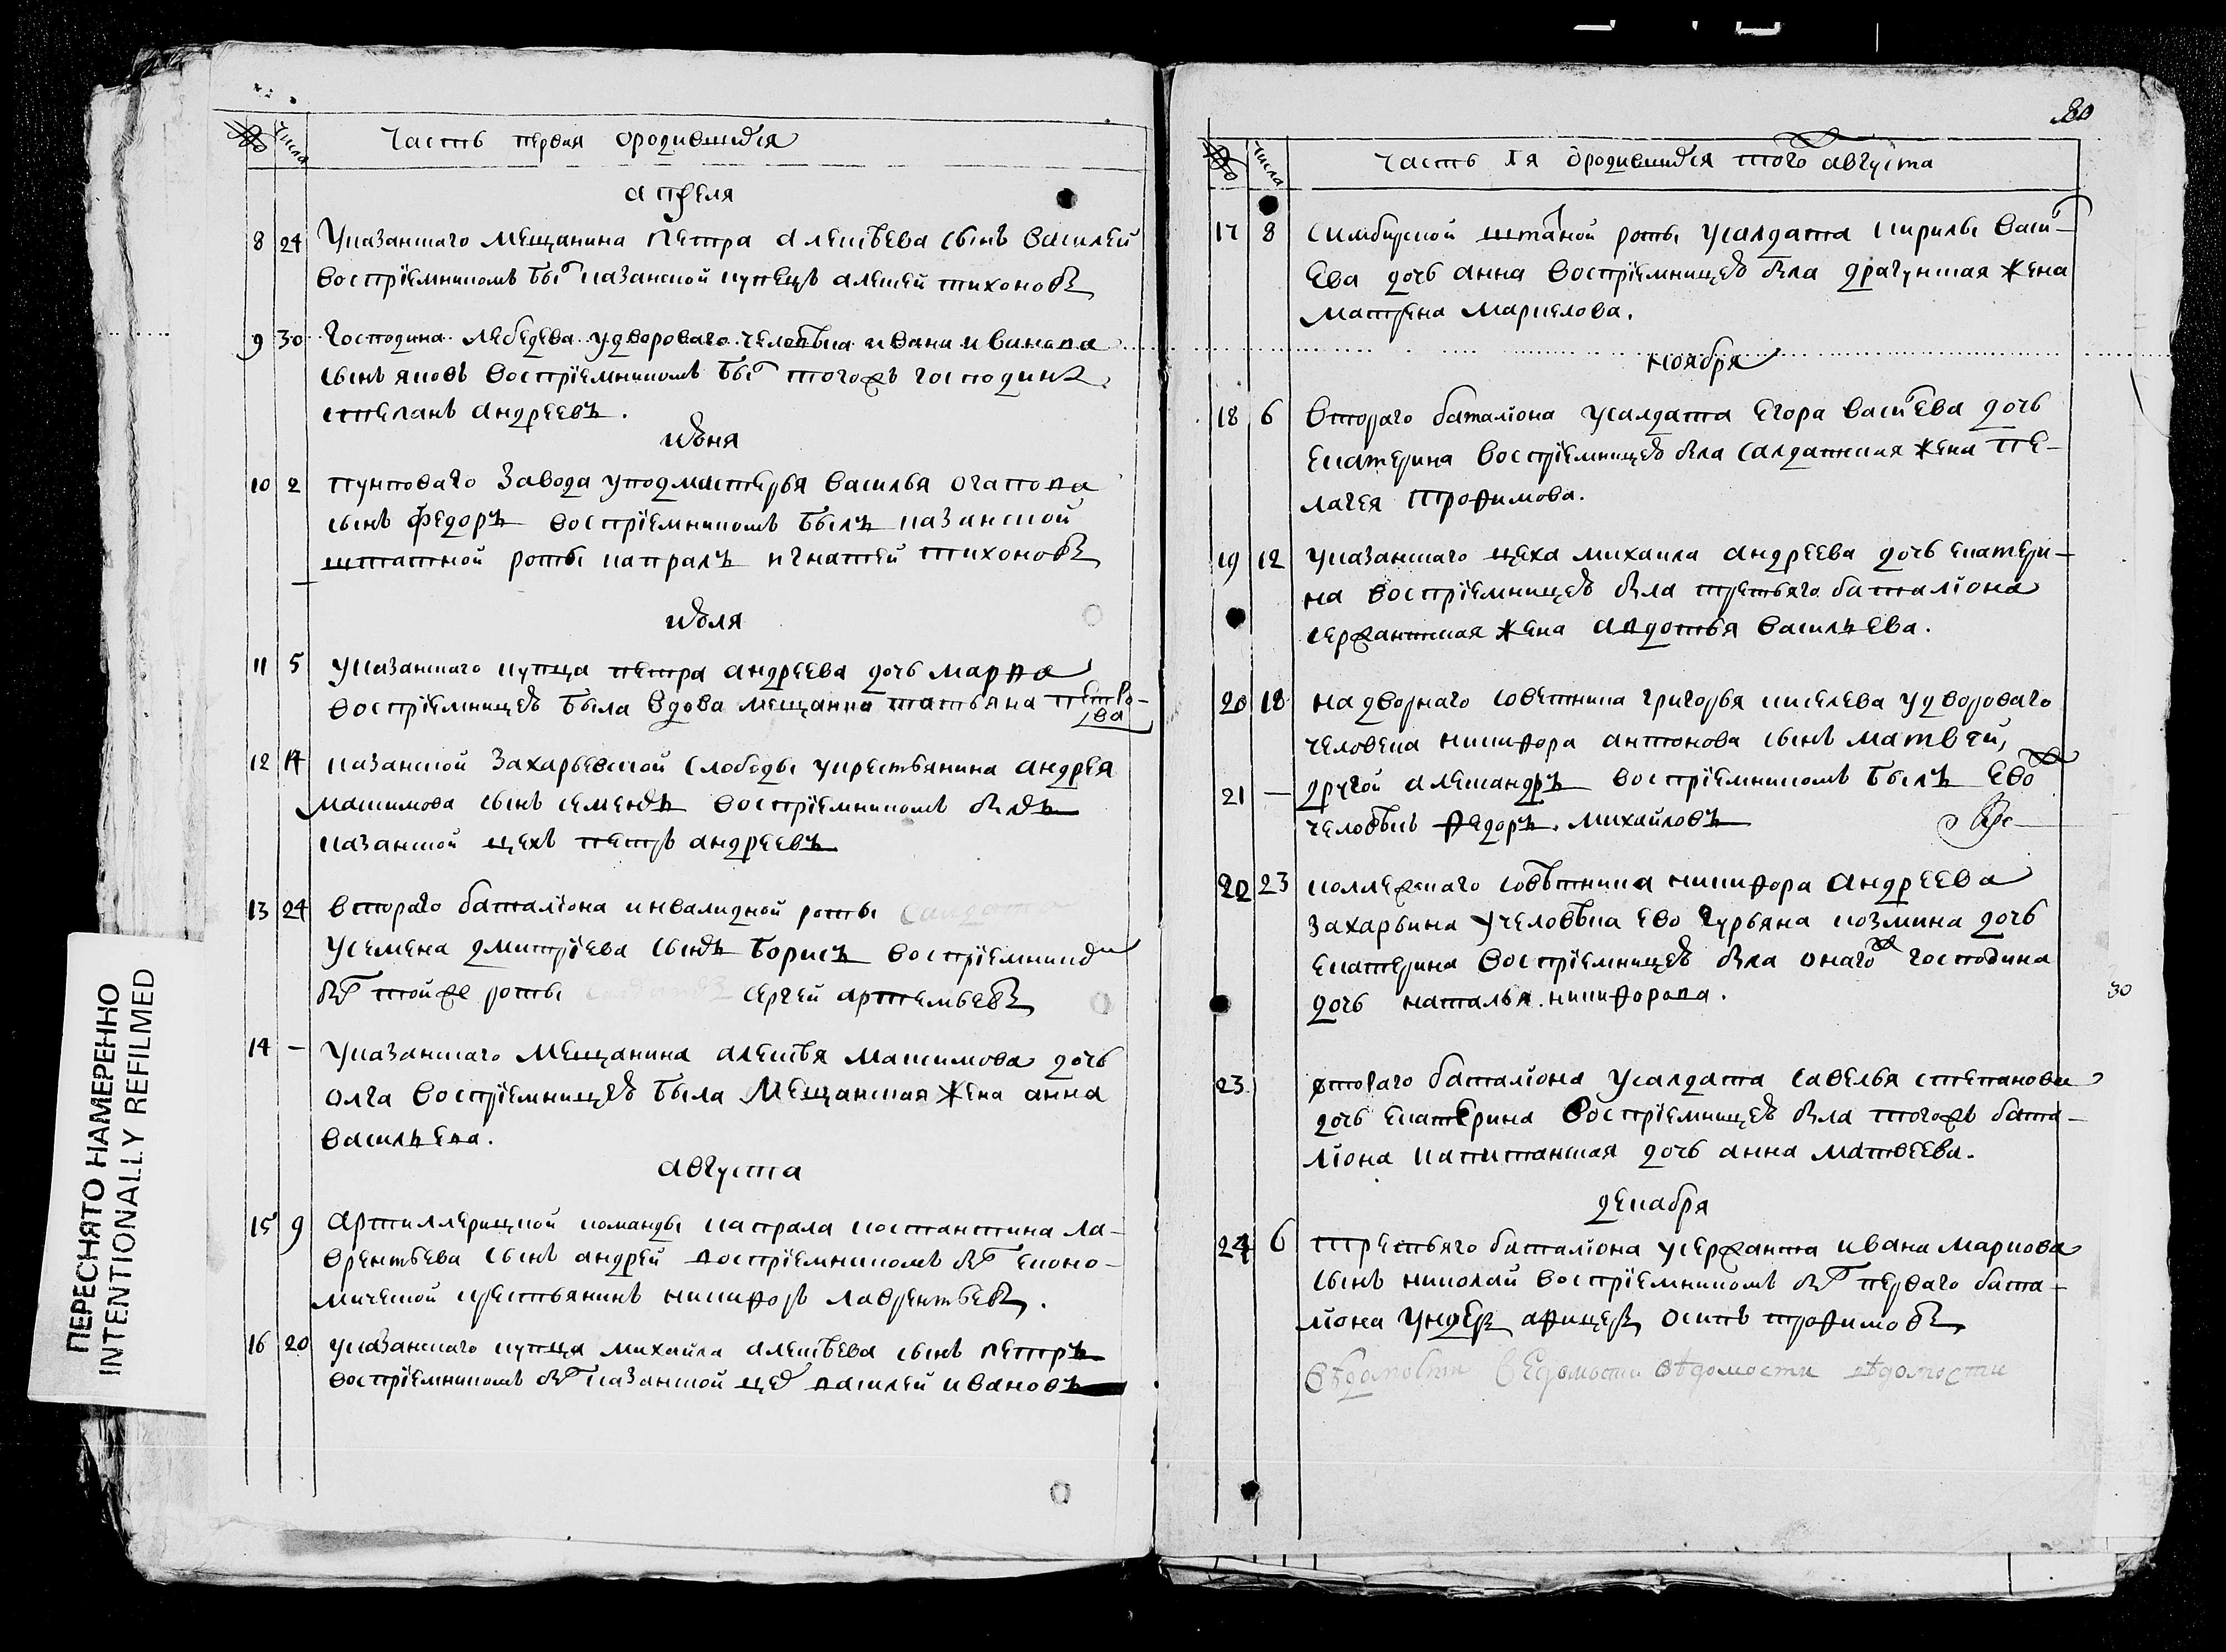 № числа Часть первая ородившихся
апреля
8 24 Указанского мещанина Петра алексѣева сынъ Василей
воспріемникомъ былъ казанской купецъ алексей тихоновъ
9 30 Господина лебедева удворового человѣка ивана иванова
сынъ яковъ воспріемникомъ былъ тогожъ господина
степанъ андреевъ.
июня
10 2 пумповаго завода уподмастерья василья агапова
сынъ федоръ воспріемникомъ былъ казанской
штатной роты капралъ игнатей тихоновъ
июля
11 5 указанского купца петра андреева дочь марфа
воспріемницею была вдова мещанка татьяна петро-
ва
12 17 казанской захарьевской слободы укрестьянина андрея
максимова сынъ семенъ воспріемникомъ былъ
казанской цехъ петръ андреевъ
13 24 втораго баталіона инвалидной роты салдата
усемена дмитріева сынъ борисъ воспріемникомъ
былъ тойже роты салдатъ сергей артемьевъ
14 — Указанского мещанина алексѣя максимова дочь
олга воспріемницею была мещанская жена анна
васильева.
августа
15 9 артиллерицкой команды капрала костантина ла-
врентьева сынъ андрей воспріемникомъ былъ еконо-
мической крестьянинъ никифоръ лаврентьевъ.
16 20 указанского купца михайла алексѣева сынъ петръ
воспріемникомъ былъ казанской цехъ василей ивановъ
80
№ числа часть 1я ородившихся того августа
17 8 симбирской штатной роты усалдата кирилы васил-
ева дочь анна воспріемницею была драгунская жена
матрена маркелова.
ноября
18 6 втораго баталіона усалдата егора васильева дочь
екатерина воспріемницею была салдатская жена пе-
лагея трофимова.
19 12 указанского цеха михаила андреева дочь екатери-
на воспріемницею была третьяго баталіона
сержантская жена авдотья васильева.
20 18 надворнаго советника григорья киселева удворового
человека никифора антонова сынъ матвей,
21 — другой александръ воспріемникомъ былъ ево
человѣкъ федоръ михайловъ
22 23 коллежскаго совѣтника никифора андреева
захарьина учеловѣка ево гурьяна козмина дочь
екатерина воспріемницею была онаго господина
дочь наталья никифорова.
30
23 втораго баталіона усалдата савелья степанова
дочь екатерина воспріемницею была тогожъ бата-
ліона капитанская дочь анна матвеева.
декабря
24 6 третьяго баталіона усержанта ивана маркова
сынъ николай воспріемникомъ былъ перваго бата-
ліона ундеръ афицеръ осипъ трофимовъ
вѣдомости ведомости вѣдомости вѣдомости
ПЕРЕСНЯТО НАМЕРЕННО
INTENTIONALLY REFILMED